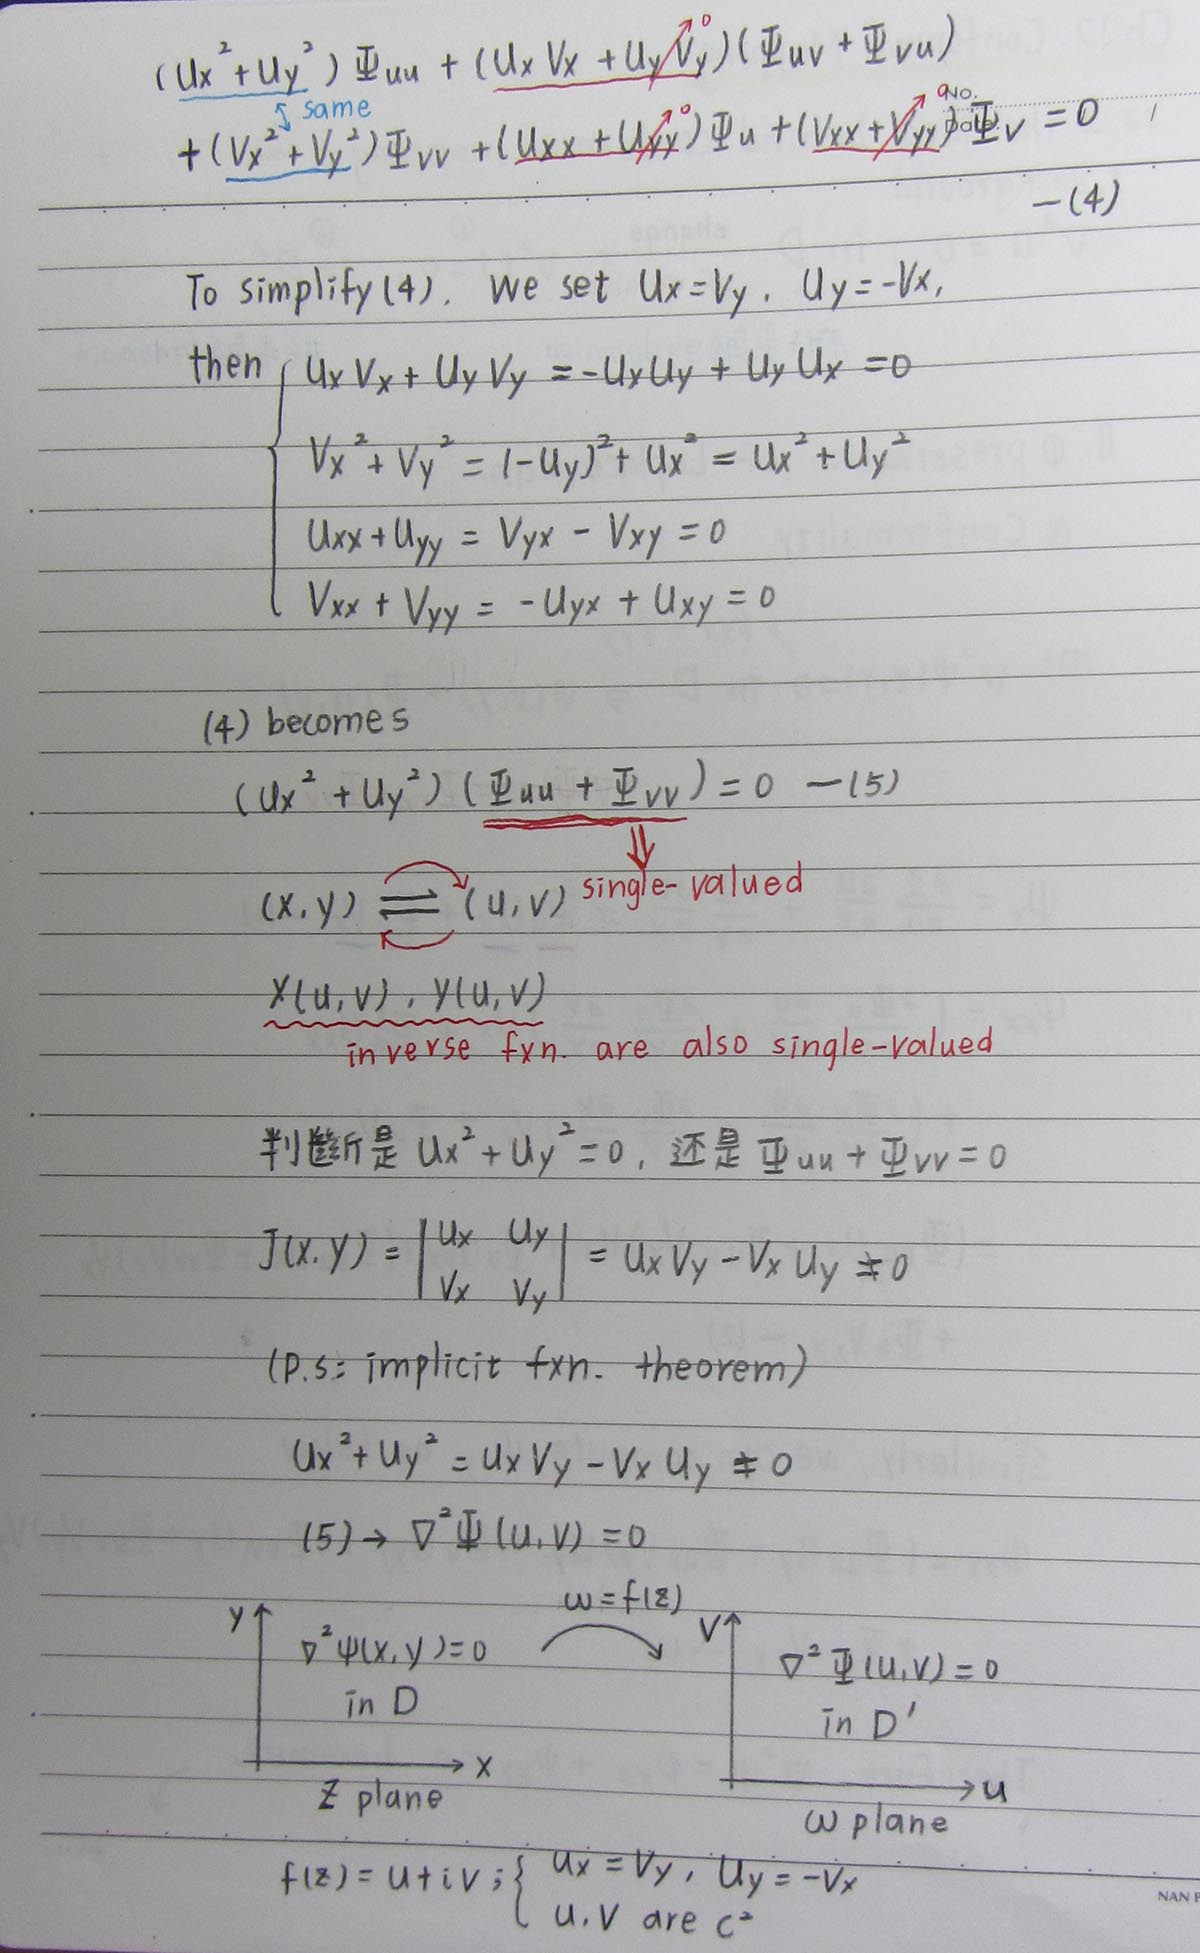 (Ux² + Uy²) Φuu + (Ux Vx + Uy Vy)(Φuv + Φvu)
0
same
+ (Vx² + Vy²) Φvv + (Uxx + Uyy) Φu + (Vxx + Vyy) Φv = 0
0
0
No.
— (4)
To simplify (4), We set Ux = Vy, Uy = -Vx,
then { Ux Vx + Uy Vy = -Ux Uy + Uy Ux = 0
Vx² + Vy² = (-Uy)² + Ux² = Ux² + Uy²
Uxx + Uyy = Vyx - Vxy = 0
Vxx + Vyy = -Uyx + Uxy = 0
(4) becomes
(Ux² + Uy²)(Φuu + Φvv) = 0 — (5)
⇓
(x, y) ⇌ (u, v) single-valued
X(u, v), Y(u, v)
inverse fxn. are also single-valued
判斷是 Ux² + Uy² = 0, 还是 Φuu + Φvv = 0
J(x, y) = | Ux Uy | = Ux Vy - Vx Uy ≠ 0
| Vx Vy |
(p.s: implicit fxn. theorem)
Ux² + Uy² = Ux Vy - Vx Uy ≠ 0
(5) → ∇²Φ(u, v) = 0
ω = f(z)
y
v
∇²ψ(x, y) = 0
∇²Φ(u, v) = 0
in D
in D'
x
u
z plane
ω plane
f(z) = u + iv ; { Ux = Vy, Uy = -Vx
u, v are C²